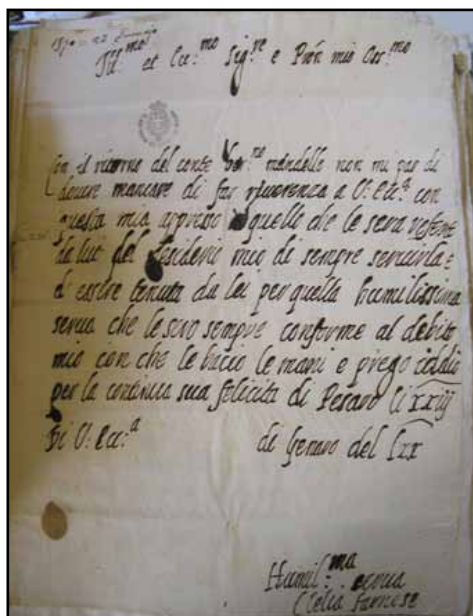 Ill:mo et Ecc:mo Sig:re e Pron mio Oss:mo
Con il ritorno del conte mandello non mi par di
devere mancare di far riverenza a V: Ecc:a con
questa mia appresso a quello che le sera referto
da lui del desiderio mio di sempre servirla e
d'essere tenuta da lei per quella humilissima
serva che le sero sempre conforme al debito
mio con che le bacio le mani e prego iddio
per la continua sua felicita di Pesaro li xxiij
di Genaro del Lxx
Di V: Ecc:a
Humil:ma serva
Clelia Farnese